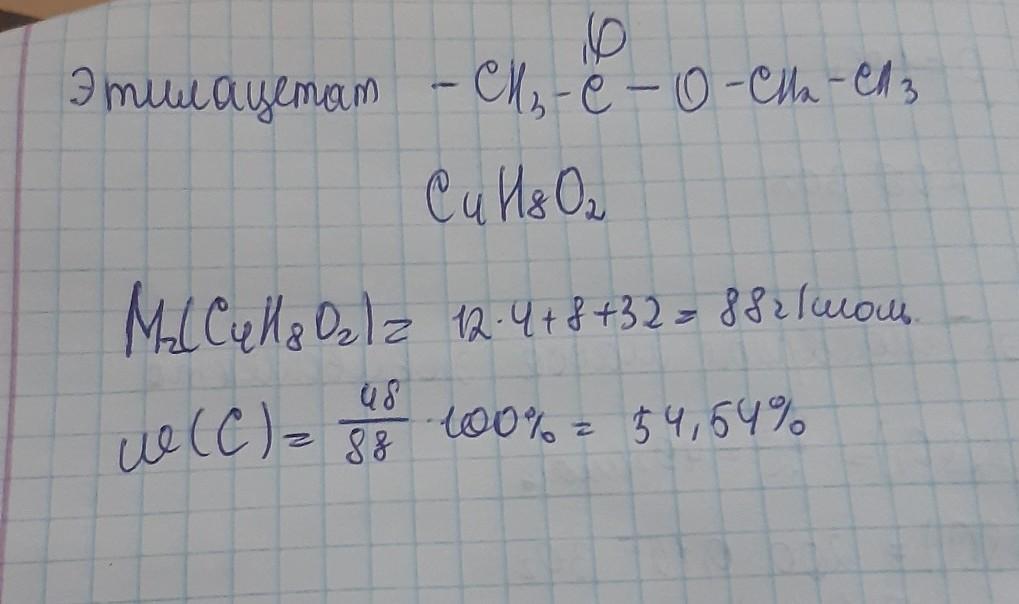 O
Этилацетат - CH3 - C - O - CH2 - CH3
C4H8O2
Mr(C4H8O2) = 12·4+8+32 = 88г/моль.
ω(C) = 48/88 · 100% = 54,54%